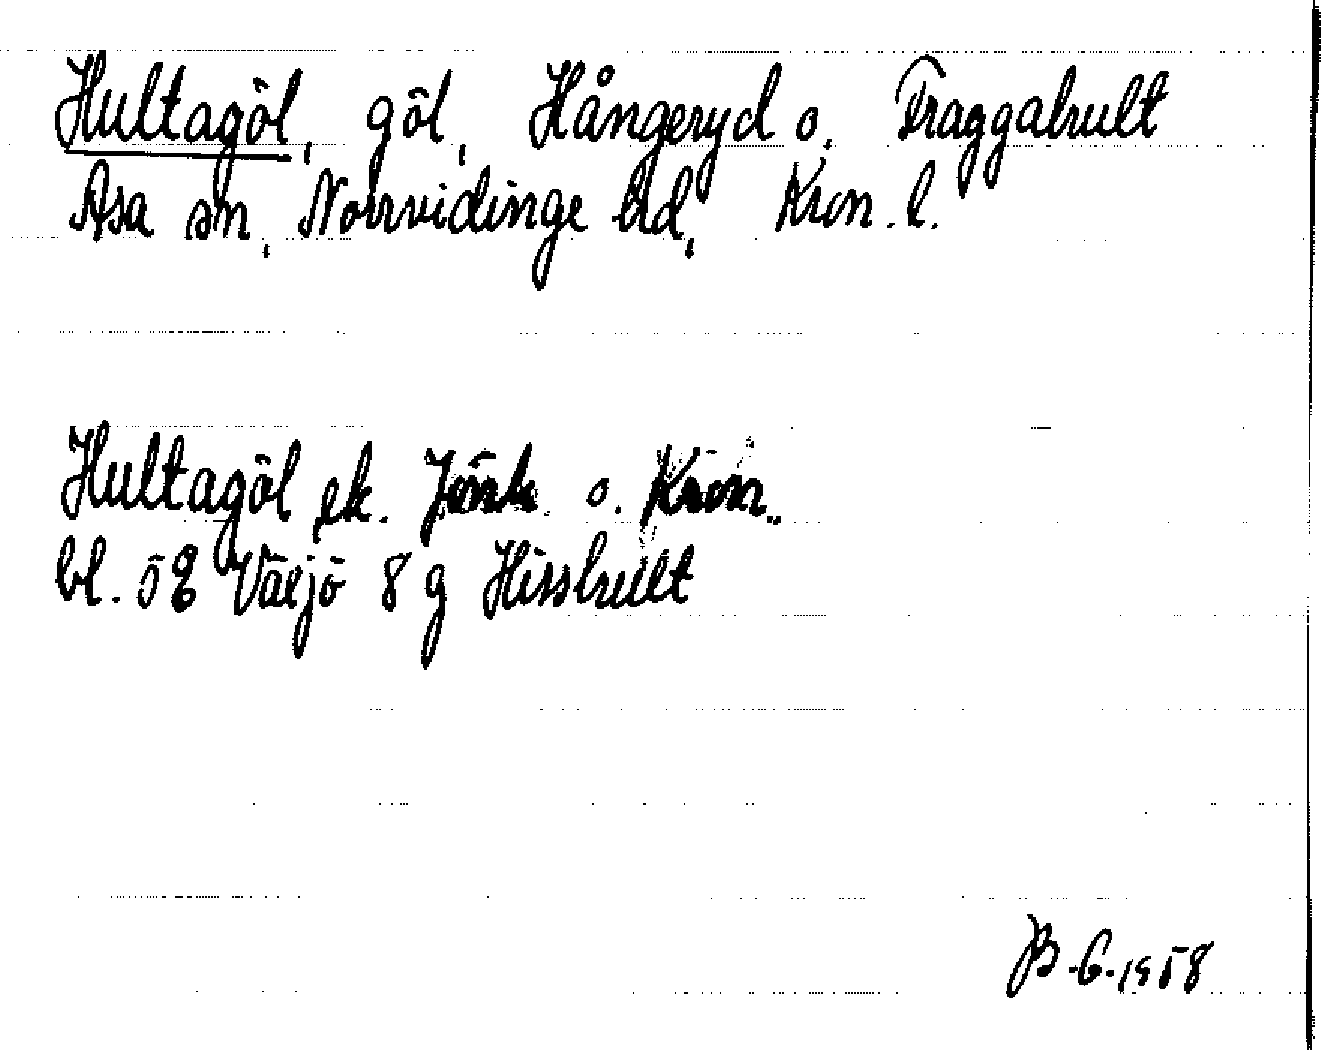 Hultagöl, göl, Hångeryd o. Fraggahult
Asa sn, Norrvidinge hd, Kron. l.
Hultagöl ek. Jönk. o. Kron.
bl. ö8 Växjö 8 g Hisshult
JB. 6. 1958